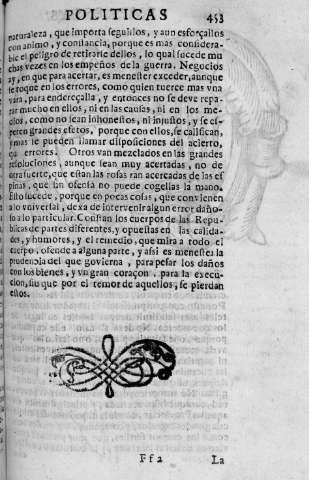 POLITICAS 453
naturaleza, que importa seguillos, y aun esforçallos
con animo, y constancia, porque es mas considera-
ble el peligro de retirarse dellos, lo qual sucede mu
chas vezes en los empeños de la guerra. Negocios
ay, en que para acertar, es menester exceder, aunque
se toque en los errores, como quien tuerce mas vna
vara, para endereçalla, y entonces no se deve repa-
rar mucho en ellos, ni en las causas, ni en los me-
dios, como no sean inhonestos, ni injustos, y se es-
peren grandes efetos, porque con ellos, se califican,
y mas se pueden llamar disposiciones del acierto,
que errores. Otros van mezclados en las grandes
resoluciones, aunque sean muy acertadas, no de
otra suerte, que estan las rosas tan acercadas de las es
pinas, que sin ofensa no puede cogellas la mano.
Esto sucede, porque en pocas cosas, que convienen
a lo vniversal, dexa de intervenir algun error daño-
so a lo particular. Constan los cuerpos de las Repu
blicas de partes diferentes, y opuestas en las calida-
des, y humores, y el remedio, que mira a todo el
cuerpo, ofende a alguna parte, y assi es menester la
prudencia del que govierna, para pesar los daños
con los bienes, y vn gran coraçon, para la execu-
cion, sin que por el temor de aquellos, se pierdan
estos.
Ff2 La